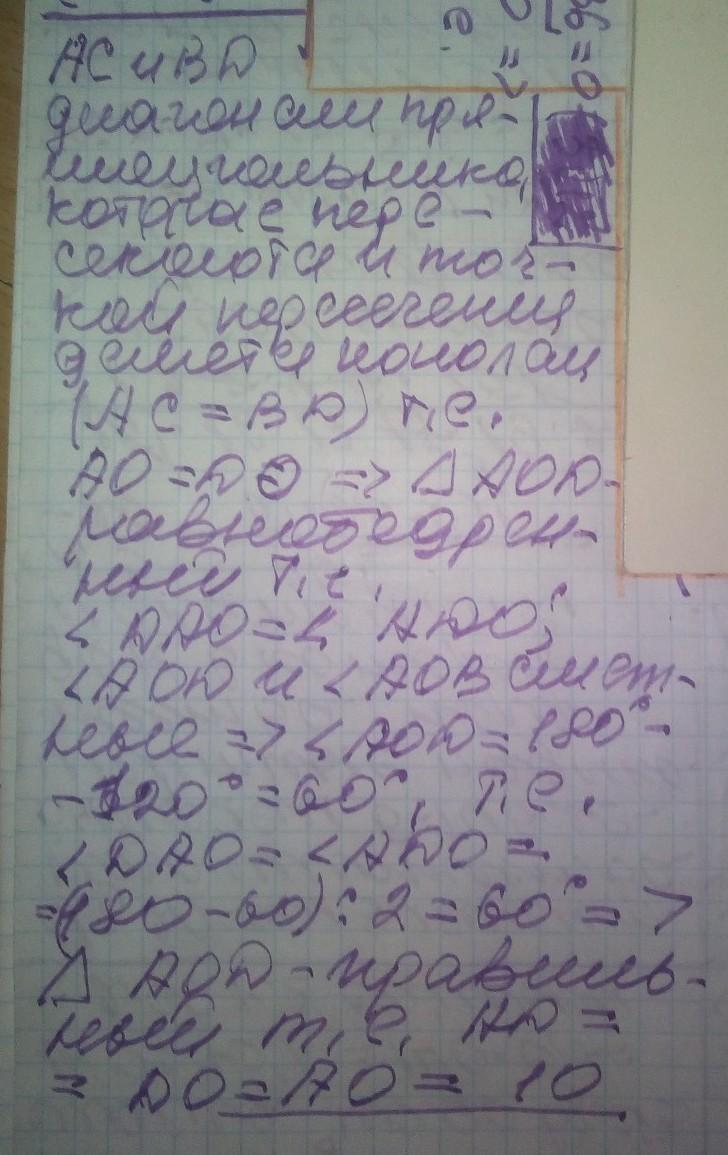 AC и BD
диагонали пря-
моугольника,
которые пере-
секаются и точ-
кой пересечения
делятся пополам
(AC = BD) т.е.
AO = DO => △ AOD-
равнобедрен-
ный т.е.
< DAO = < ADO;
< AOD и < AOB смеж-
ные => < AOD = 180°-
- 120° = 60°, т.е.
< DAO = < ADO =
= (180 - 60) : 2 = 60° =>
△ AOD - правиль-
ный т.е. AD =
= DO = AO = 10